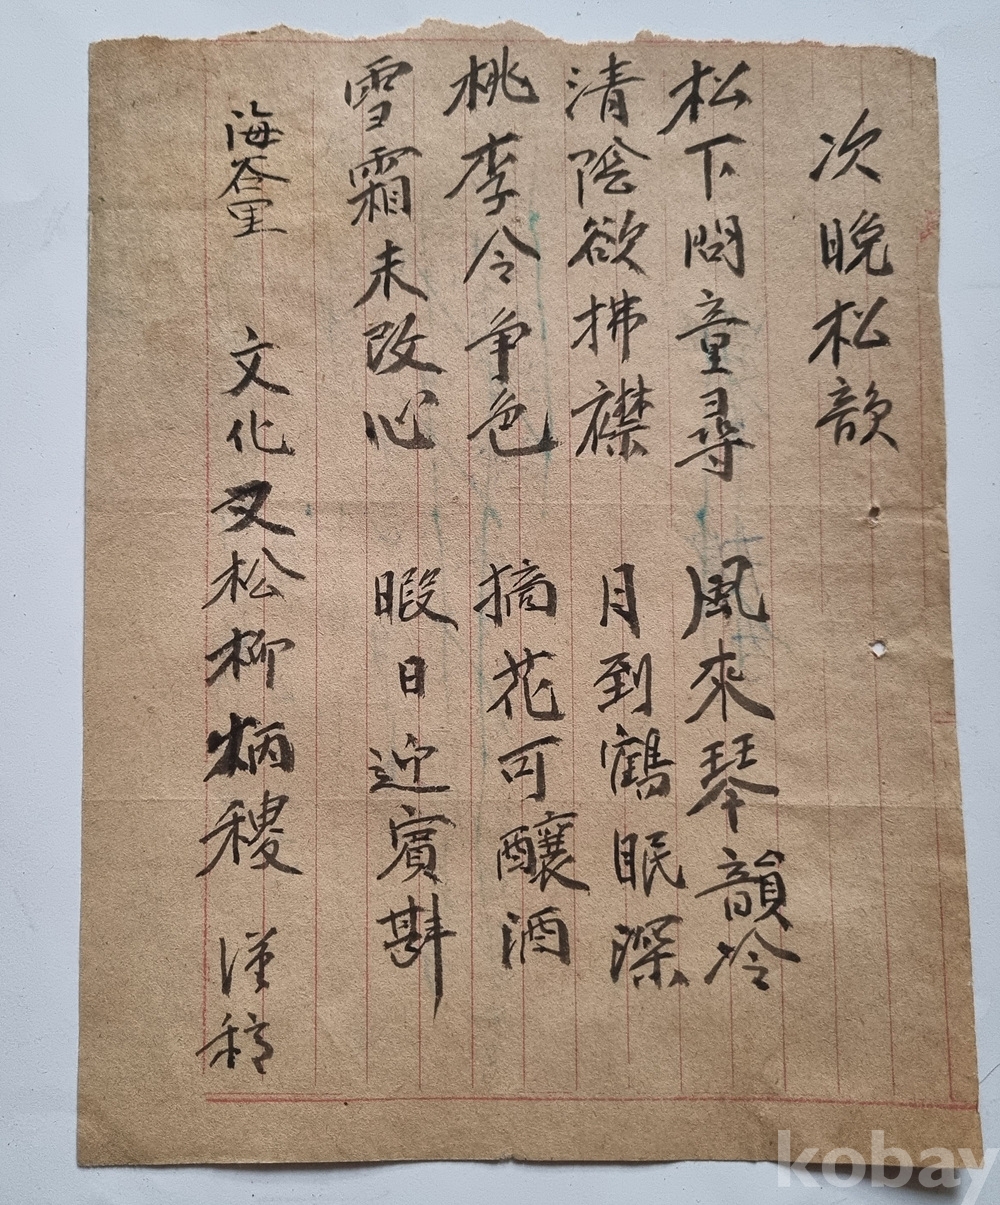 次晚松韻
松下問童尋 風來琴韻冷
清陰欲拂襟 月到鶴眠深
桃李令爭色 摘花可釀酒
雪霜未改心 暇日迎賓斟
海谷里 文化 又松 柳炳稷 謹稿
kobay